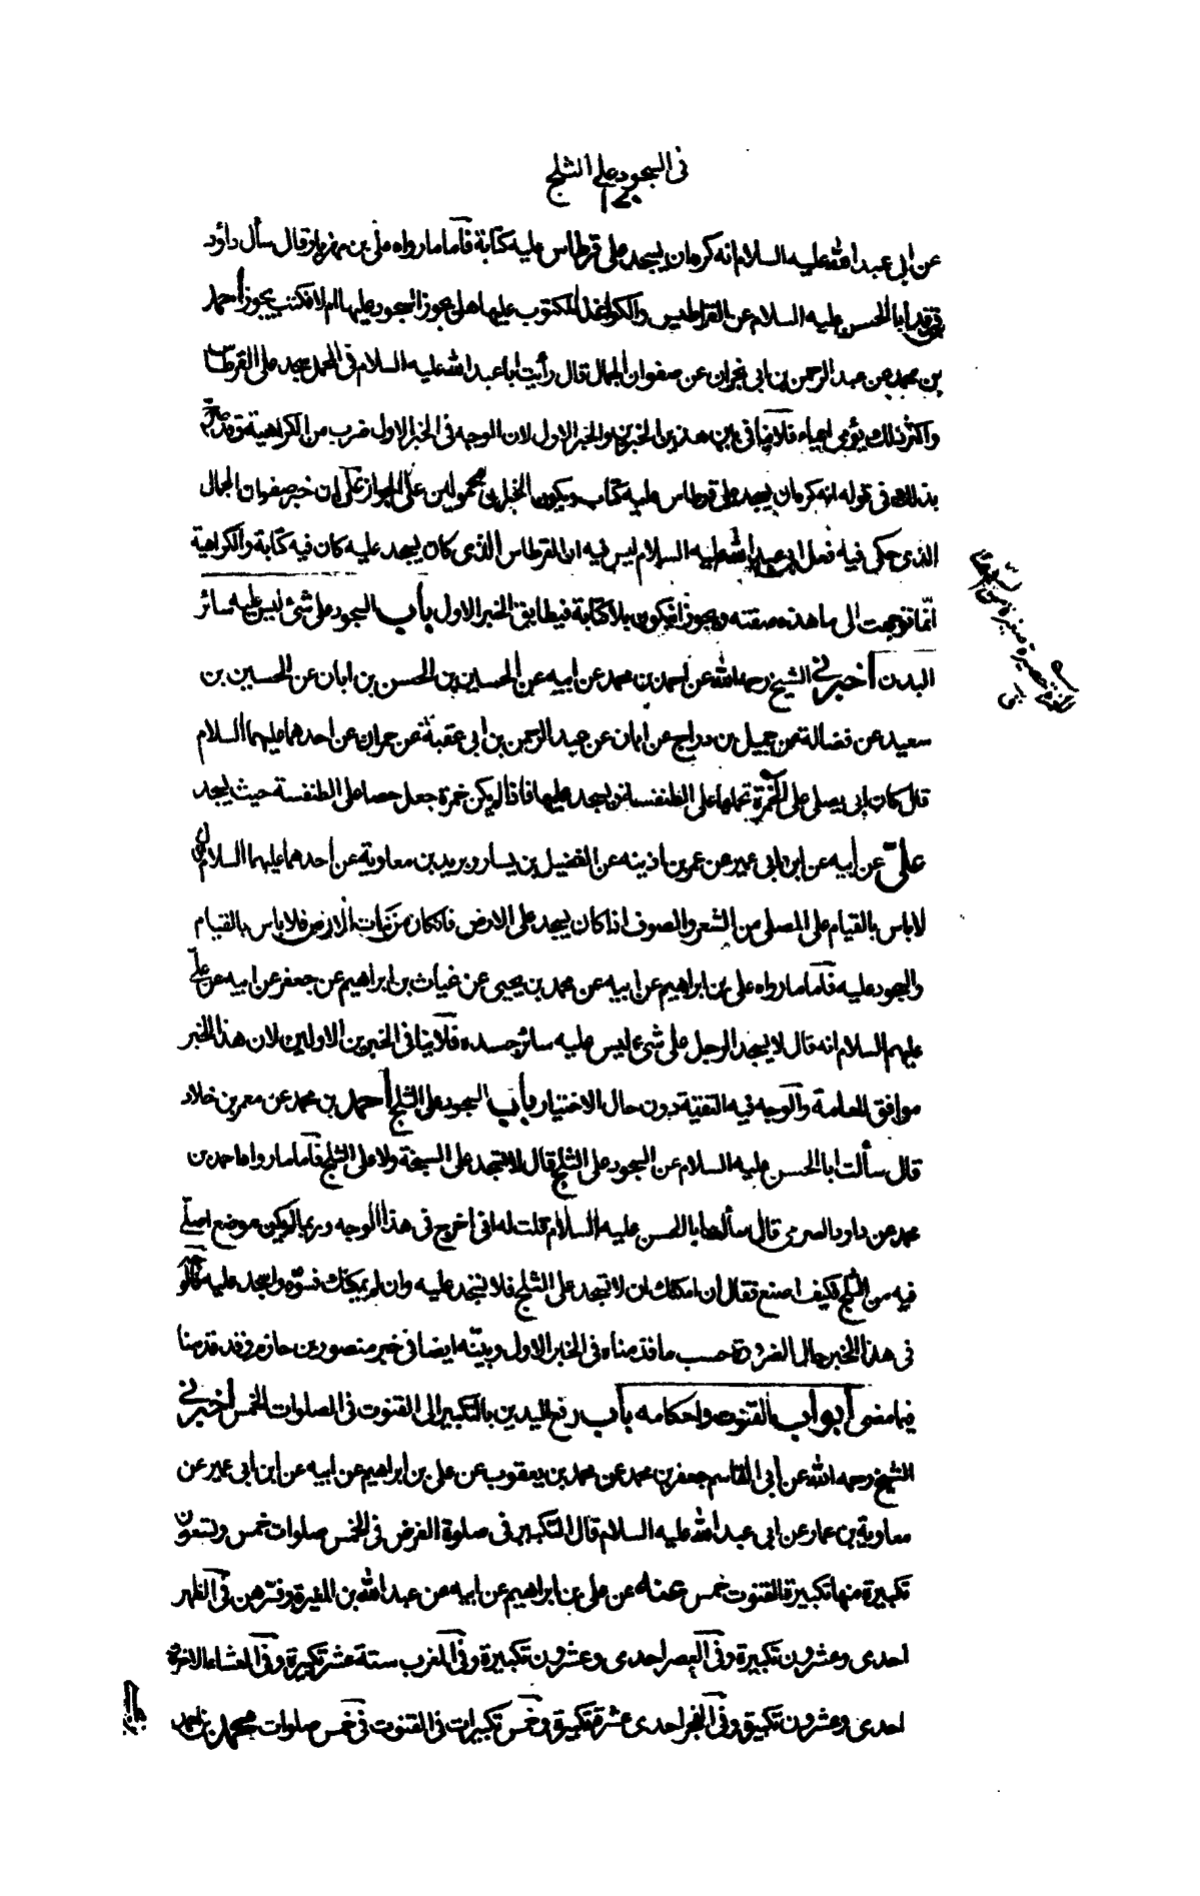 في السجود على الثلج
عن ابي عبد الله عليه السلام انه كره ان يسجد على قرطاس عليه كتابة فاما ما رواه على بن مهزيار قال سأل داؤد
فرقد ابا الحسن عليه السلام عن القراطيس والكواغذ المكتوب عليها هل يجوز السجود عليها ام لا فكتب يجوز احمد
بن محمد عن عبد الرحمن بن ابي نجران عن صفوان الجمال قال رأيت ابا عبد الله عليه السلام في المحمل يسجد على القرطاس
واكثر ذلك يؤمى ايماء فلا ينافي بين هذين الخبرين والخبر الاول لان الوجه في الخبر الاول ضرب من الكراهية وقد صرح
بذلك في قوله انه كره ان يسجد على قرطاس عليه كتاب ويكون الخبران محمولين على الجواز على ان خبر صفوان الجمال
الذى حكى فيه فعل ابي عبد الله عليه السلام ليس فيه ان القرطاس الذى كان يسجد عليه كان فيه كتابة والكراهية
انما توجهت الى ما هذه صفته ويجوز ان يكون بلا كتابة فيطابق الخبر الاول باب السجود على شئ ليس عليه سائر
البدن اخبرني الشيخ رحمه الله عن احمد بن محمد عن ابيه عن الحسين بن الحسن بن ابان عن الحسين بن
سعيد عن فضالة عن جميل بن دراج عن ابان عن عبد الرحمن بن ابي عقبة عن حمران عن احدهما عليهما السلام
قال كان ابي يصلى على الخمرة يجعلها على الطنفسة ويسجد عليها فاذا لم يكن خمرة جعل حصا على الطنفسة حيث يسجد
على عن ابيه عن ابن ابي عمير عن عمر بن اذينه عن الفضيل بن يسار وبريد بن معاوية عن احدهما عليهما السلام قال
لا باس بالقيام على المصلى من الشعر والصوف اذا كان يسجد على الارض فان كان من نبات الارض فلا باس بالقيام
والسجود عليه فاما ما رواه على بن ابراهيم عن ابيه عن محمد بن يحيى عن غياث بن ابراهيم عن جعفر عن ابيه عن على
عليهم السلام انه قال لا يسجد الرجل على شئ ليس عليه سائر جسده فلا ينافي الخبرين الاولين لان هذا الخبر
موافق للعامة والوجه فيه التقية دون حال الاختيار باب السجود على الثلج احمد بن محمد عن معمر بن خلاد
قال سألت ابا الحسن عليه السلام عن السجود على الثلج قال لا تسجد على السبخة ولا على الثلج فاما ما رواه احمد بن
محمد عن داود الصرمى قال سألت ابا الحسن عليه السلام قلت له انى اخرج في هذا الوجه وربما لم يكن موضع اصلى
فيه من الثلج فكيف اصنع فقال ان امكنك ان لا تسجد على الثلج فلا تسجد عليه وان لم يمكنك فسوّه واسجد عليه
في هذا الخبر حال الضرورة حسب ما قدمناه في الخبر الاول وبينه ايضا في خبر منصور بن حازم وقد قدمنا
فيما مضى ابواب القنوت واحكامه باب رفع اليدين بالتكبير الى القنوت في الصلوات الخمس اخبرني
الشيخ رحمه الله عن ابي القاسم جعفر بن محمد عن محمد بن يعقوب عن على بن ابراهيم عن ابيه عن ابن ابي عمير عن
معاوية بن عمار عن ابي عبد الله عليه السلام قال التكبير في صلوة الفرض في الخمس صلوات خمس وتسعون
تكبيرة منها تكبيرة القنوت خمس عنه عن على بن ابراهيم عن ابيه عن عبد الله بن المغيرة وفسرهن في الظهر
احدى وعشرون تكبيرة وفي العصر احدى وعشرون تكبيرة وفي المغرب ستة عشر تكبيرة وفي العشاء الاخرة
احدى وعشرون تكبيرة وفي الفجر احدى عشرة تكبيرة وخمس تكبيرات في القنوت في خمس صلوات محمد بن احمد